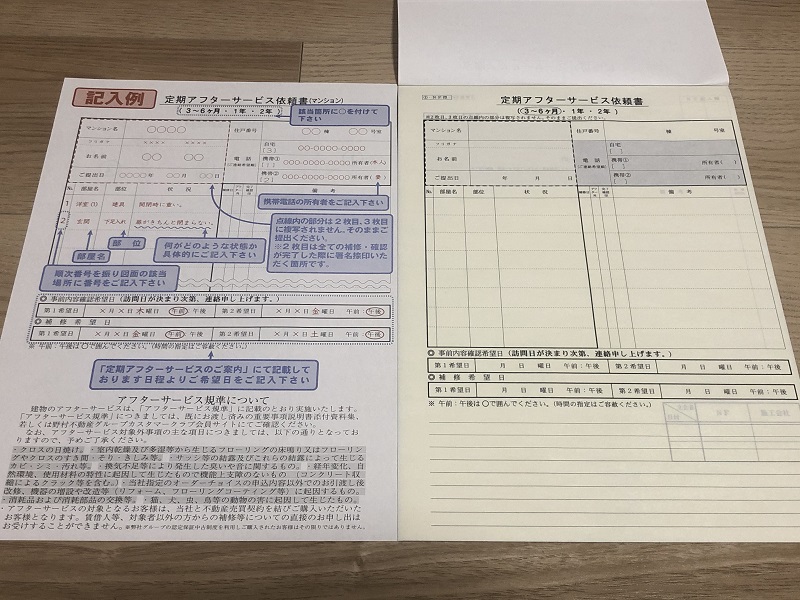 記入例
定期アフターサービス依頼書(マンション)
(3~6ヶ月・1年・2年)
該当箇所に○を付けて
下さい
マンション名 ○○○○ 住戸番号 ○○ 棟 ○○ 号室
フリガナ
お名前 ○○ ○○
電話
自宅
(3) ○○-○○○○-○○○○
携帯①
(1) ○○○-○○○○-○○○○ 所有者(本人)
携帯②
(2) ○○○-○○○○-○○○○ 所有者(妻)
ご提出日 ○○○○年 ○○月 ○○日
携帯電話の所有者をご記入下さい
No. 部屋名 部位 状況 備考
1 洋室(1) 建具 開閉時に重い。
2 玄関 下足入れ 扉がきちんと閉まらない。
点線内の部分は2枚目、3枚目
に複写されません。そのままご
提出ください。
※2枚目は全ての補修・確認
が完了した際に署名捺印いた
だく箇所です。
部位
部屋名
何がどのような状態か
具体的にご記入下さい
順次番号を振り図面の該当
場所に番号をご記入下さい
◎事前内容確認希望日(訪問日が決まり次第、連絡申し上げます。)
第1希望日 ×月×日木曜日 午前:午後 第2希望日 ×月×日金曜日 午前:午後
◎補修希望日
第1希望日 ×月×日金曜日 午前:午後 第2希望日 ×月×日土曜日 午前:午後
※ 午前・午後は○で囲んでください。(時間の指定はご容赦ください。)
「定期アフターサービスのご案内」にて記載して
おります日程よりご希望日をご記入下さい
アフターサービス規準について
建物のアフターサービスは、「アフターサービス規準」に記載のとおり実施いたします。
「アフターサービス規準」につきましては、既にお渡し済みの重要事項説明書添付資料集、
若しくは野村不動産グループカスタマークラブ会員サイトにてご確認ください。
なお、アフターサービス対象外事項の主な項目につきましては、以下の通りとなってお
りますので、予めご了承ください。
・クロスの日焼け。・室内乾燥及び多湿等から生じるフローリングの床鳴り又はフローリン
グやクロスのすき間・そり・きしみ等。・サッシ等の結露及びこれらの結露によって生じる
カビ・シミ・汚れ等。・換気不足等により発生した臭いや音に関するもの。・経年変化、自
然環境、使用材料の特性に起因して生じたもので機能上支障のないもの(コンクリート収
縮によるクラック等を含む。)・当社指定のオーダーチョイスの申込内容以外でのお引渡し後
改修、機器の増設や改造等(リフォーム、フローリングコーティング等)に起因するもの。
・消耗品および消耗部品の交換等。・猫、犬、虫、鳥等の動物の害に起因して生じたもの。
・アフターサービスの対象となるお客様は、当社と不動産売買契約を結びご購入いただいた
お客様となります。賃借人等、対象者以外の方からの補修等についての直接のお申し出は
お受けすることができません。※弊社グループの認定保証中古制度を利用しご購入されたお客様はその限りではありません。
定期アフターサービス依頼書
(3~6ヶ月・1年・2年)
マンション名 住戸番号 棟 号室
フリガナ
お名前
電話
自宅
携帯① 所有者( )
携帯② 所有者( )
ご提出日 年 月 日
No. 部屋名 部位 状況 備考
◎事前内容確認希望日(訪問日が決まり次第、連絡申し上げます。)
第1希望日 月 日 曜日 午前:午後 第2希望日 月 日 曜日 午前:午後
◎補修希望日
第1希望日 月 日 曜日 午前:午後 第2希望日 月 日 曜日 午前:午後
※ 午前・午後は○で囲んでください。(時間の指定はご容赦ください。)